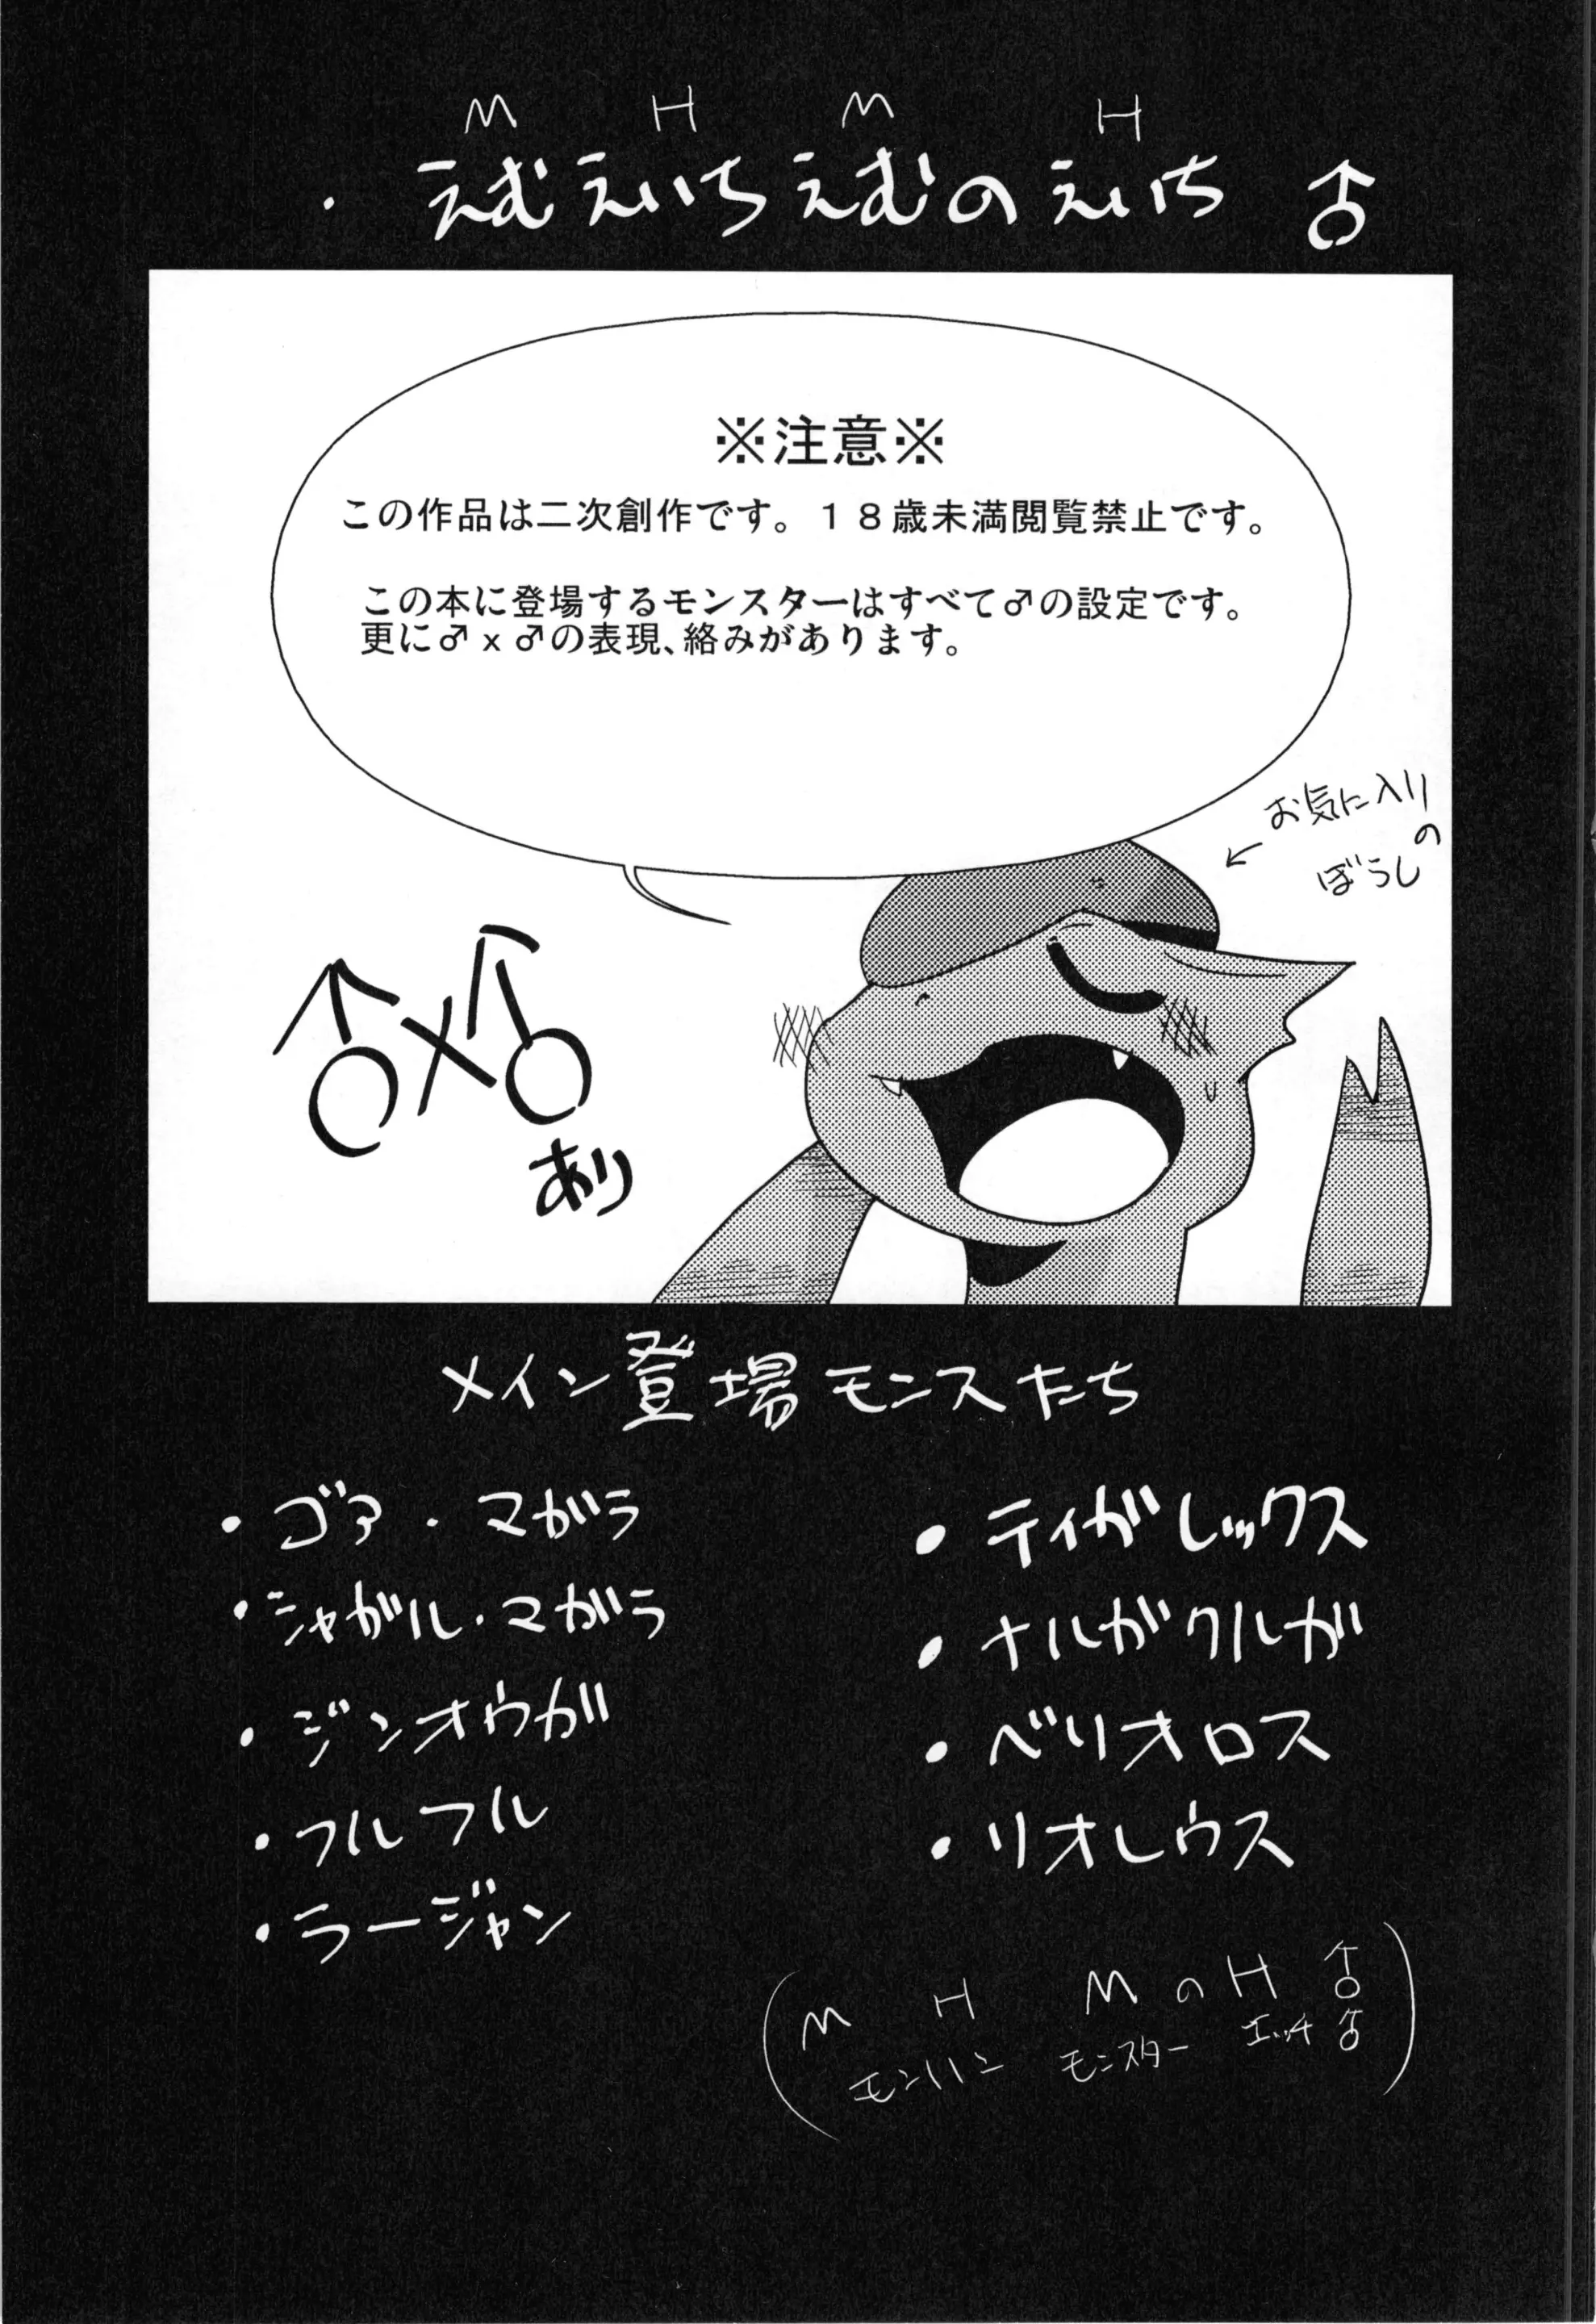 M H M H
・えむえいちえむのえいち ♂
※注意※
この作品は二次創作です。18歳未満閲覧禁止です。
この本に登場するモンスターはすべて♂の設定です。
更に♂x♂の表現、絡みがあります。
←お気に入り
の
ぼうし
♂×♂
あり
メイン登場モンスたち
・ゴア・マガラ
・シャガル・マガラ
・ジンオウガ
・フルフル
・ラージャン
・ティガレックス
・ナルガクルガ
・ベリオロス
・リオレウス
(M H MのH ♂
モンハン モンスター エッチ ♂)